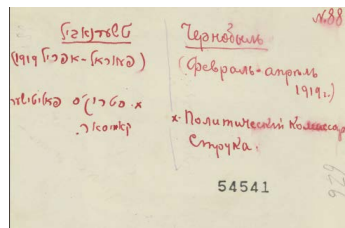 № 88
טשערנאביל
(פעווראל-אפריל 1919)
א. סטרוק'ס פאליטישער
קאמיסאר.
Чернобыль
(Февраль-апрель
1919г.)
х. Политический Комиссар
Струка.
54541